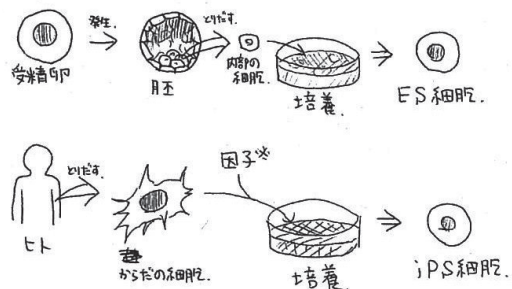 発生.
とりだす.
受精卵
胚
内部の
細胞.
培養.
ES細胞.
ヒト
とりだす.
からだの細胞.
因子※
培養.
iPS細胞.